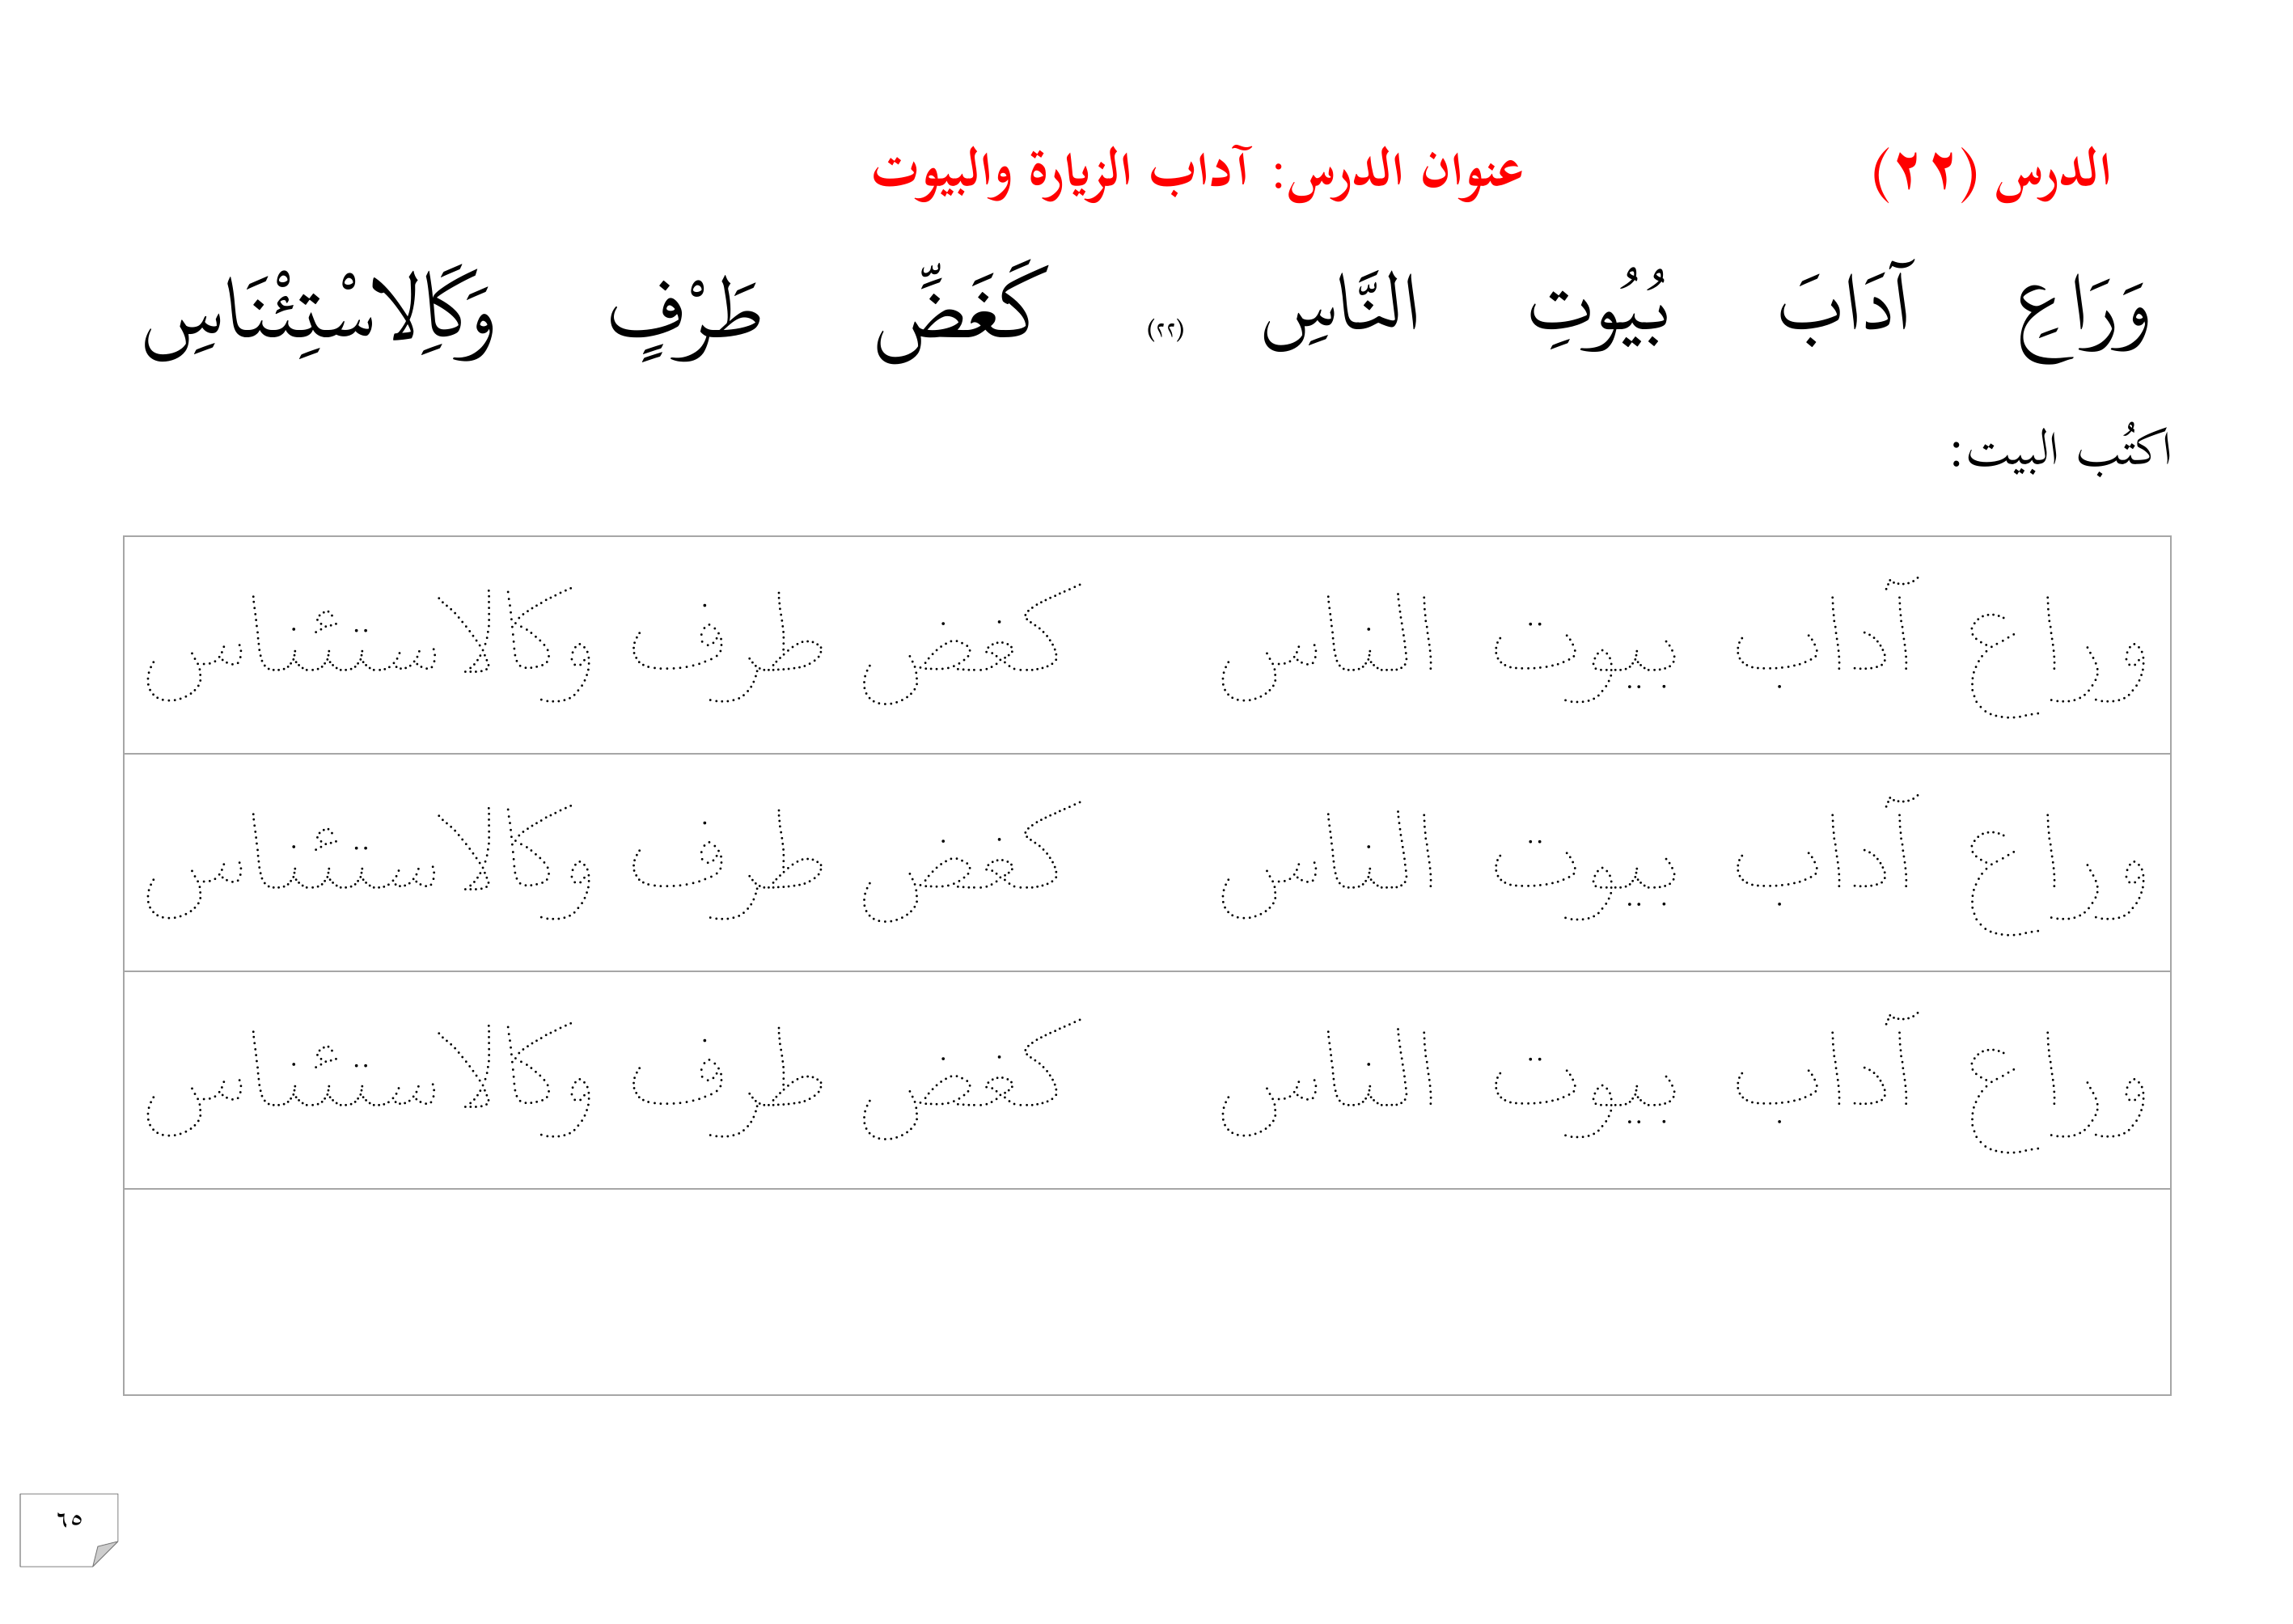 الدرس (٢٢) عنوان الدرس: آداب الزيارة والبيوت
وَرَاعِ آدَابَ بُيُوتِ النَّاسِ (٢٢) كَغَضِّ طَرْفٍ وَكَالِاسْتِئْنَاسِ
اكتُب البيت:
وراع آداب بيوت الناس كغض طرف وكالاستئناس
وراع آداب بيوت الناس كغض طرف وكالاستئناس
وراع آداب بيوت الناس كغض طرف وكالاستئناس
٦٥